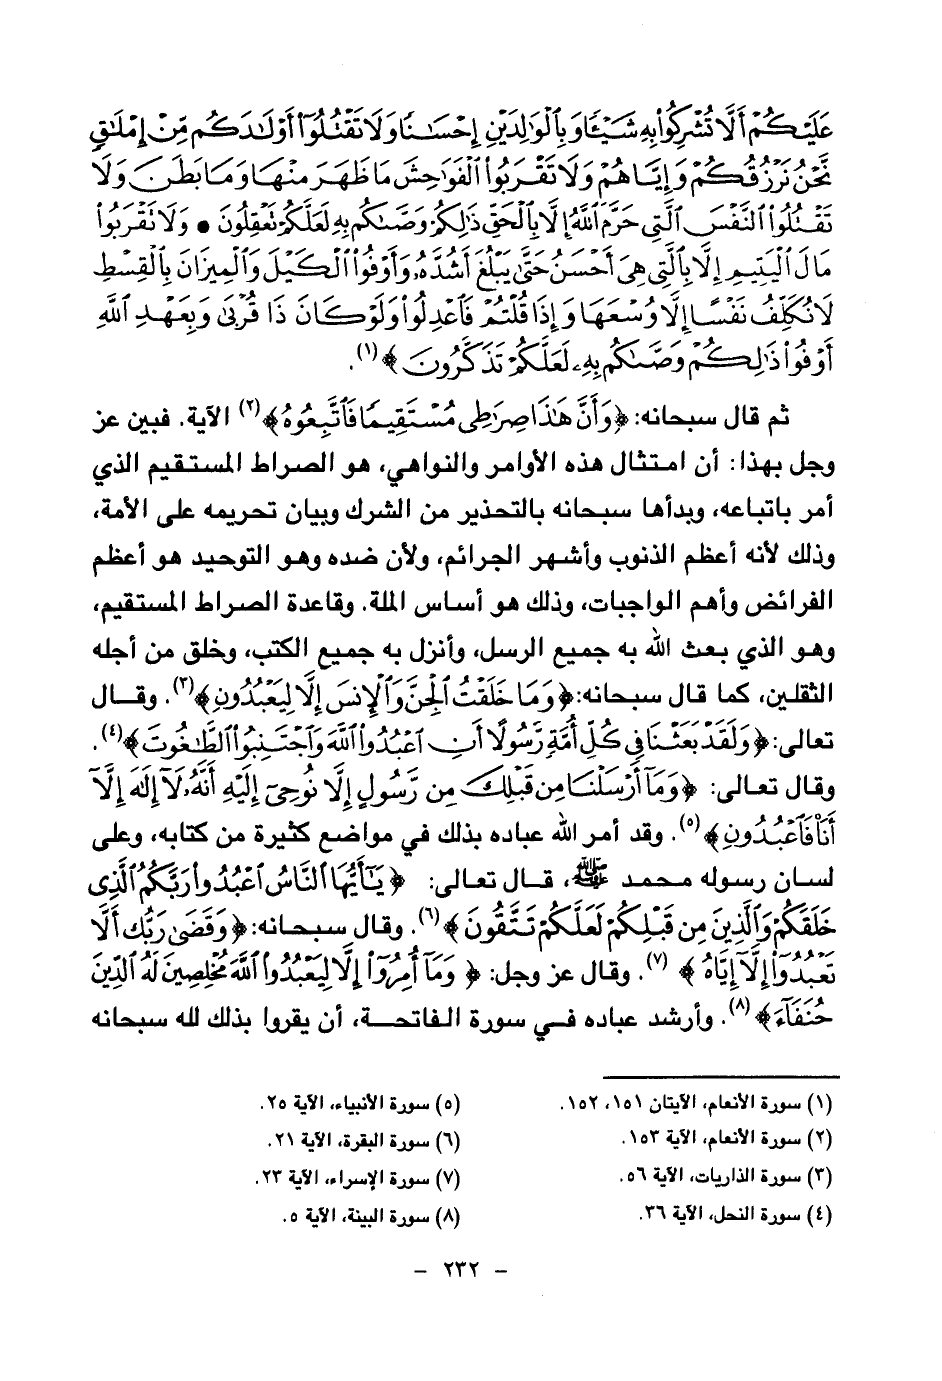 عَلَيْكُمْ أَلَّا تُشْرِكُوا بِهِ شَيْئًا وَبِالْوَالِدَيْنِ إِحْسَانًا وَلَا تَقْتُلُوا أَوْلَادَكُم مِّنْ إِمْلَاقٍ
نَّحْنُ نَرْزُقُكُمْ وَإِيَّاهُمْ وَلَا تَقْرَبُوا الْفَوَاحِشَ مَا ظَهَرَ مِنْهَا وَمَا بَطَنَ وَلَا
تَقْتُلُوا النَّفْسَ الَّتِي حَرَّمَ اللَّهُ إِلَّا بِالْحَقِّ ذَٰلِكُمْ وَصَّاكُم بِهِ لَعَلَّكُمْ تَعْقِلُونَ • وَلَا تَقْرَبُوا
مَالَ الْيَتِيمِ إِلَّا بِالَّتِي هِيَ أَحْسَنُ حَتَّىٰ يَبْلُغَ أَشُدَّهُ وَأَوْفُوا الْكَيْلَ وَالْمِيزَانَ بِالْقِسْطِ
لَا نُكَلِّفُ نَفْسًا إِلَّا وُسْعَهَا وَإِذَا قُلْتُمْ فَاعْدِلُوا وَلَوْ كَانَ ذَا قُرْبَىٰ وَبِعَهْدِ اللَّهِ
أَوْفُوا ذَٰلِكُمْ وَصَّاكُم بِهِ لَعَلَّكُمْ تَذَكَّرُونَ ﴾(١).
ثم قال سبحانه: ﴿وَأَنَّ هَٰذَا صِرَاطِي مُسْتَقِيمًا فَاتَّبِعُوهُ﴾(٢) الآية. فبين عز
وجل بهذا: أن امتثال هذه الأوامر والنواهي، هو الصراط المستقيم الذي
أمر باتباعه، وبدأها سبحانه بالتحذير من الشرك وبيان تحريمه على الأمة،
وذلك لأنه أعظم الذنوب وأشهر الجرائم، ولأن ضده وهو التوحيد هو أعظم
الفرائض وأهم الواجبات، وذلك هو أساس الملة. وقاعدة الصراط المستقيم،
وهو الذي بعث الله به جميع الرسل، وأنزل به جميع الكتب، وخلق من أجله
الثقلين، كما قال سبحانه: ﴿وَمَا خَلَقْتُ الْجِنَّ وَالْإِنسَ إِلَّا لِيَعْبُدُونِ﴾(٣). وقال
تعالى: ﴿وَلَقَدْ بَعَثْنَا فِي كُلِّ أُمَّةٍ رَّسُولًا أَنِ اعْبُدُوا اللَّهَ وَاجْتَنِبُوا الطَّاغُوتَ﴾(٤).
وقال تعالى: ﴿وَمَا أَرْسَلْنَا مِن قَبْلِكَ مِن رَّسُولٍ إِلَّا نُوحِي إِلَيْهِ أَنَّهُ لَا إِلَٰهَ إِلَّا
أَنَا فَاعْبُدُونِ﴾(٥). وقد أمر الله عباده بذلك في مواضع كثيرة من كتابه، وعلى
لسان رسوله محمد ﷺ، قال تعالى: ﴿ يَا أَيُّهَا النَّاسُ اعْبُدُوا رَبَّكُمُ الَّذِي
خَلَقَكُمْ وَالَّذِينَ مِن قَبْلِكُمْ لَعَلَّكُمْ تَتَّقُونَ ﴾(٦). وقال سبحانه: ﴿وَقَضَىٰ رَبُّكَ أَلَّا
تَعْبُدُوا إِلَّا إِيَّاهُ ﴾ (٧). وقال عز وجل: ﴿ وَمَا أُمِرُوا إِلَّا لِيَعْبُدُوا اللَّهَ مُخْلِصِينَ لَهُ الدِّينَ
حُنَفَاءَ﴾(٨). وأرشد عباده في سورة الفاتحة، أن يقروا بذلك لله سبحانه
(١) سورة الأنعام، الآيتان ١٥١، ١٥٢.
(٢) سورة الأنعام، الآية ١٥٣.
(٣) سورة الذاريات، الآية ٥٦.
(٤) سورة النحل، الآية ٣٦.
(٥) سورة الأنبياء، الآية ٢٥.
(٦) سورة البقرة، الآية ٢١.
(٧) سورة الإسراء، الآية ٢٣.
(٨) سورة البينة، الآية ٥.
– ٢٣٢ –